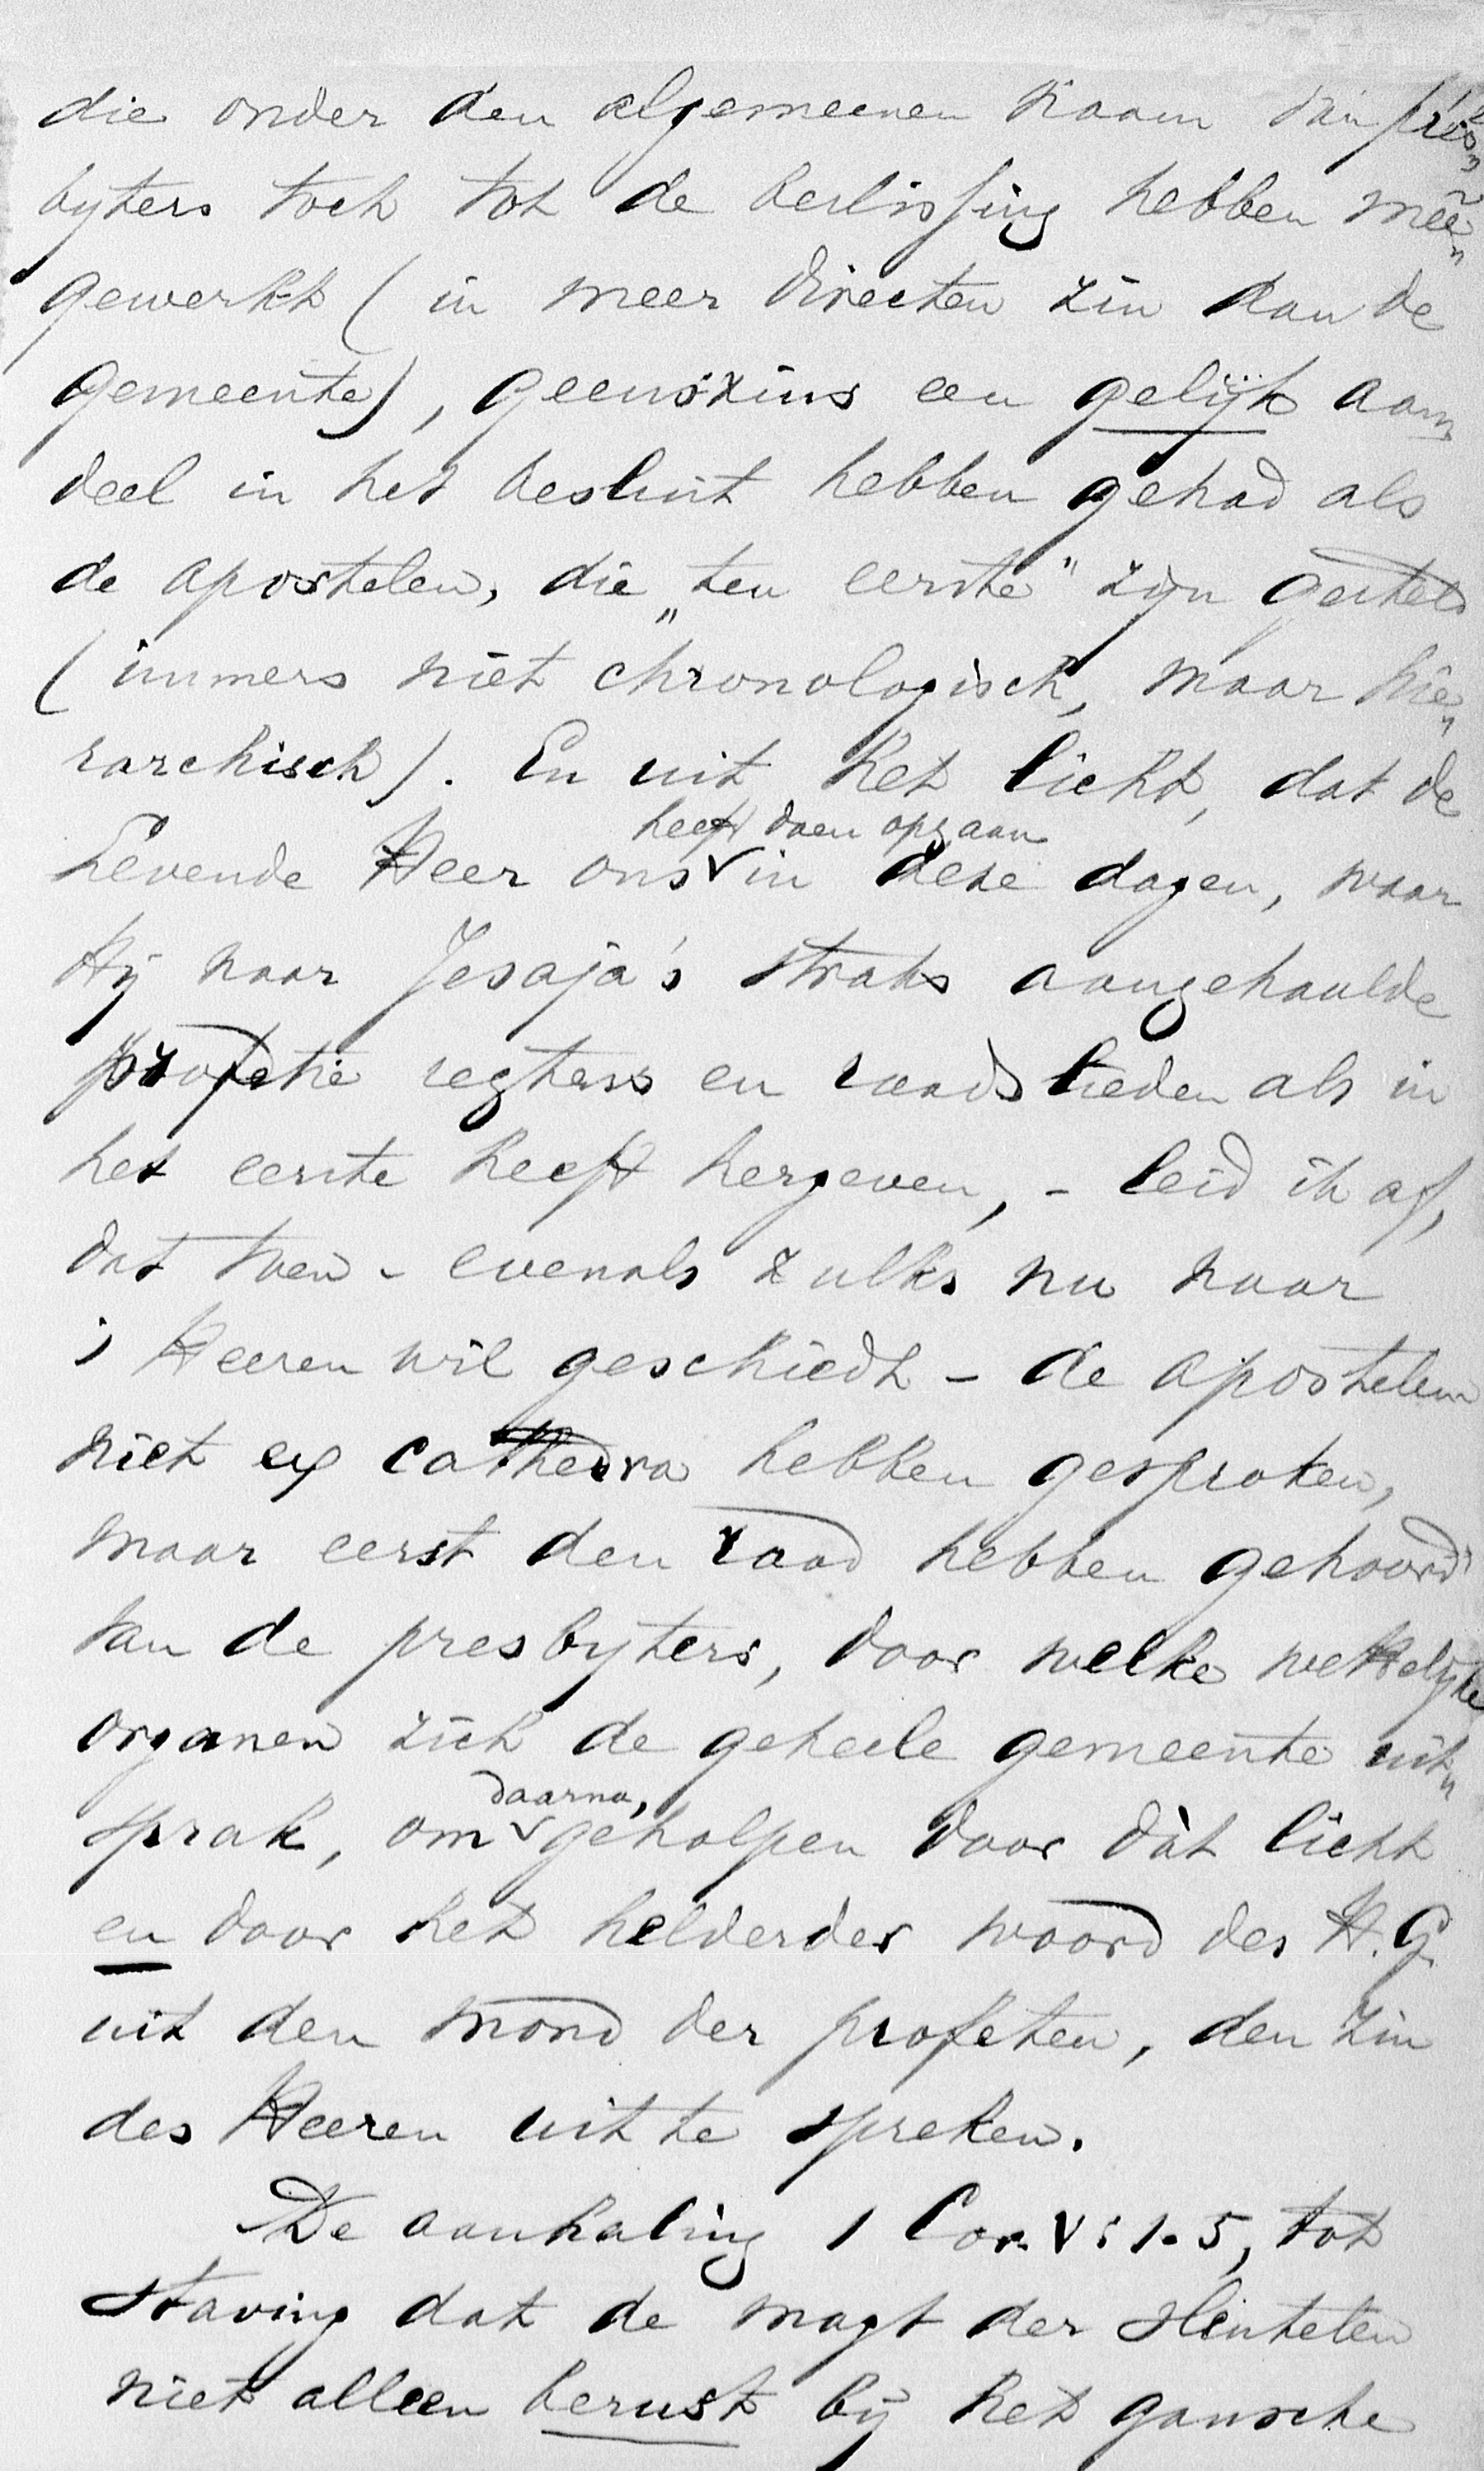 die onder den algemeenen naam van pres„
byters toch tot de beslissing hebben meê„
gewerkt (in meer directen zin dan de
gemeente), geenszins een gelijk aan„
deel in het besluit hebben gehad als
de apostelen, die „ten eerste" zijn gesteld
(immers niet chronologisch, maar hie„
rarchisch). En uit het licht, dat de
heeft doen opgaan
Levende Heer ons in deze dagen, waar
Hij naar Jesaja's straks aangehaalde
profetie regters en raadslieden als in
het eerste heeft hergeven, - leid ik af,
dat toen - evenals zulks nu naar
's Heeren wil geschiedt - de apostelen
niet ex cathedra hebben gesproken,
maar eerst den raad hebben gehoord
van de presbyters, door welke wettelijke
organen zich de geheele gemeente uit„
daarna,
sprak, om geholpen door dàt licht
en door het helderder woord des H. G.
uit den mond der profeten, den zin
des Heeren uit te spreken.
De aanhaling 1 Cor. V : 1-5, tot
staving dat de magt der sleutelen
niet alleen berust bij het gansche